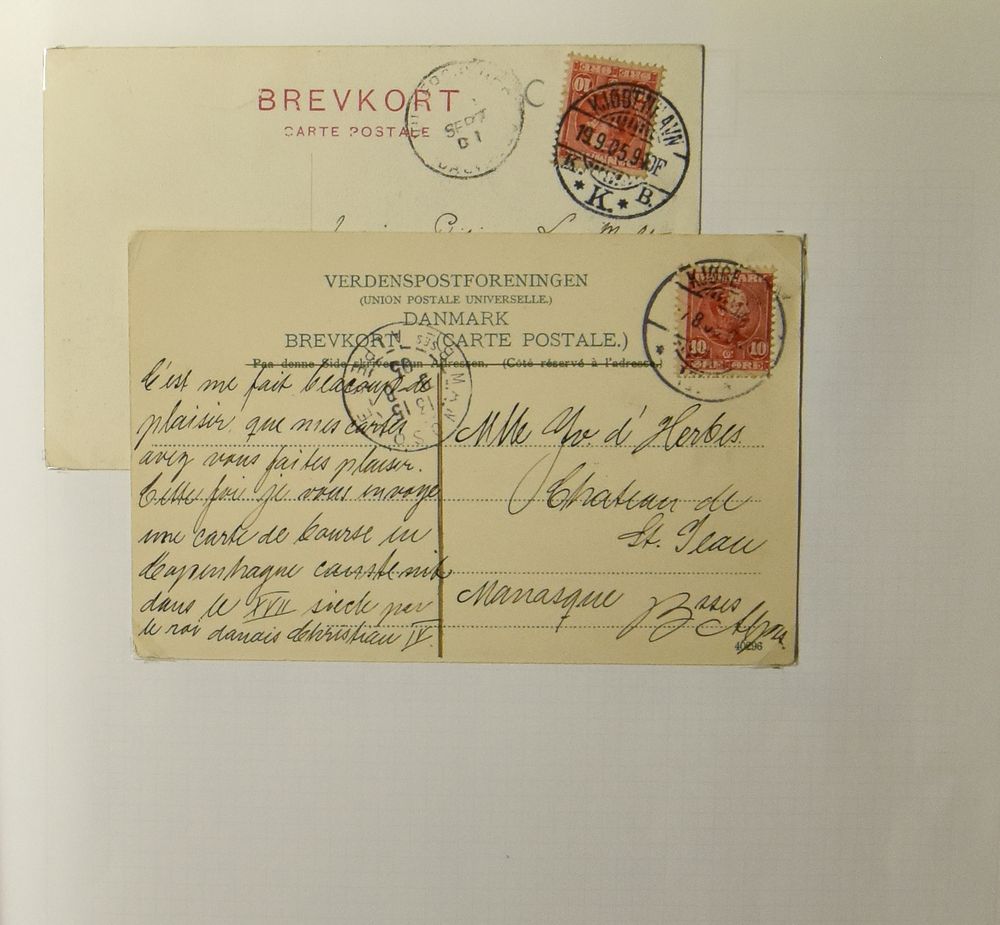 BREVKORT
CARTE POSTALE
SEP
10
KJØBENHAVN
19.9.05.9
K. K. B.
VERDENSPOSTFORENINGEN
(UNION POSTALE UNIVERSELLE.)
DANMARK
BREVKORT. (CARTE POSTALE.)
Paa denne Side skrives kun Adressen. (Côté réservé à l'adresse.)
10 10
ØRE ØRE
MANOSQUE
C'est me fait beaucoup de
plaisir que mes cartes
avez vous faites plaisir.
Cette foi je vous envoye
une carte de Bourse en
Copenhagne
dans le XVII siècle par
le roi danois Christian IV.
Mlle Yv d'Herbes
Chateau de
St. Jean
Manosque Bsses Alpes
40296